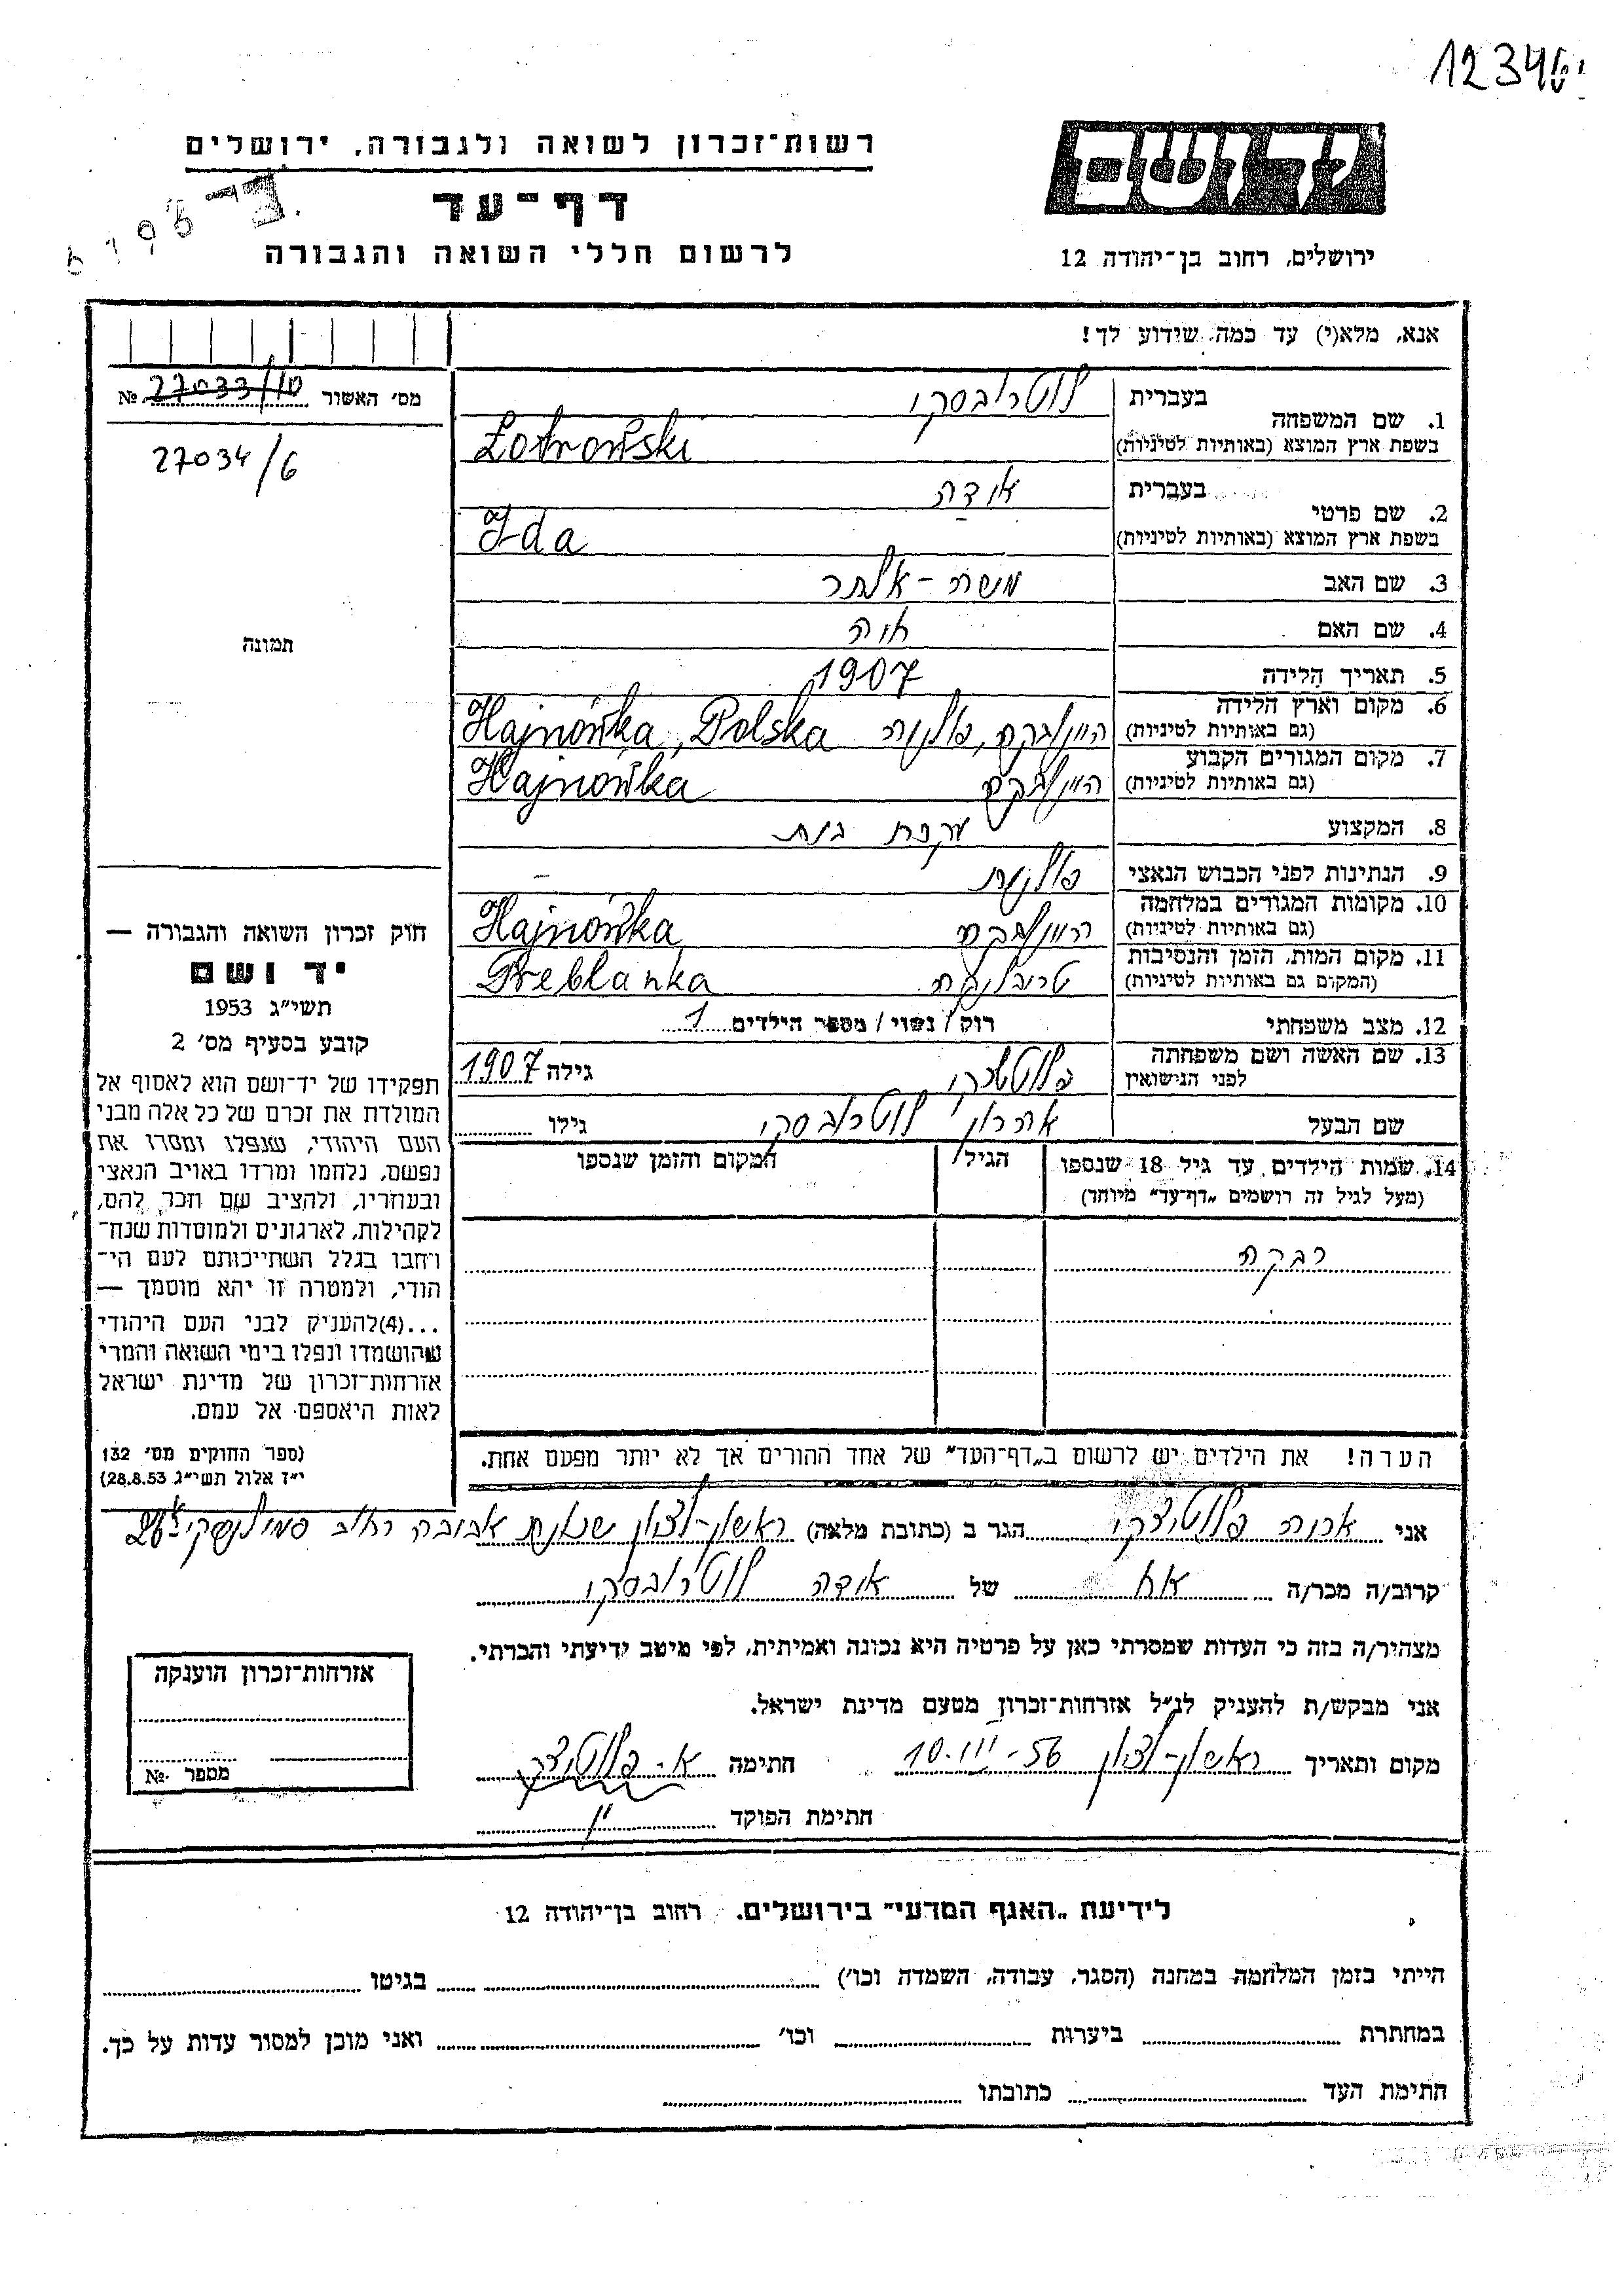 רשות־זכרון לשואה ולגבורה, ירושלים
דף־עד
לרשום חללי השואה והגבורה
ירושלים, רחוב בן־יהודה 12
אנא, מלא(י) עד כמה שידוע לך!
מס׳ האשור № 27033/10
27034/6
תמונה
1. שם המשפחה
בעברית לוטרובסקי
בשפת ארץ המוצא (באותיות לטיניות) Lotrowski
2. שם פרטי
בעברית אידה
בשפת ארץ המוצא (באותיות לטיניות) Ida
3. שם האב משה-אלתר
4. שם האם חיה
5. תאריך הלידה 1907
6. מקום וארץ הלידה
(גם באותיות לטיניות) היינובקה, פולניה Hajnówka, Polska
7. מקום המגורים הקבוע
(גם באותיות לטיניות) היינובקה Hajnówka
8. המקצוע עקרת בית
9. הנתינות לפני הכבוש הנאצי פולנית
10. מקומות המגורים במלחמה
(גם באותיות לטיניות) היינובקה Hajnówka
11. מקום המות, הזמן והנסיבות
(המקום גם באותיות לטיניות) טרבלינקה Treblanka
12. מצב משפחתי רוק / נשוי / מספר הילדים 1
13. שם האשה ושם משפחתה
לפני הנישואין גילה 1907
שם הבעל אהרון לוטרובסקי גילו
14. שמות הילדים עד גיל 18 שנספו הגיל המקום והזמן שנספו
(מעל לגיל זה רושמים „דף־עד״ מיוחד)
רבקה
הערה! את הילדים יש לרשום ב„דף־העד״ של אחד ההורים אך לא יותר מפעם אחת.
חוק זכרון השואה והגבורה —
יד ושם
תשי״ג 1953
קובע בסעיף מס׳ 2
תפקידו של יד־ושם הוא לאסוף אל
המולדת את זכרם של כל אלה מבני
העם היהודי, שנפלו ומסרו את
נפשם, נלחמו ומרדו באויב הנאצי
ובעוזריו, ולהציב שם וזכר להם,
לקהילות, לארגונים ולמוסדות שנח־
רבו בגלל השתייכותם לעם הי־
הודי, ולמטרה זו יהא מוסמך —
...(4)להעניק לבני העם היהודי
שהושמדו ונפלו בימי השואה והמרי
אזרחות־זכרון של מדינת ישראל
לאות היאספם אל עמם.
(ספר החוקים מס׳ 132
י״ז אלול תשי״ג 28.8.53)
אני הגר ב (כתובת מלאה) ראשון-לציון שכונת אביבה רחוב סמילנסקי
קרוב/ה מכר/ה אח של אידה לוטרובסקי
מצהיר/ה בזה כי העדות שמסרתי כאן על פרטיה היא נכונה ואמיתית, לפי מיטב ידיעתי והכרתי.
אני מבקש/ת להעניק לנ״ל אזרחות־זכרון מטעם מדינת ישראל.
מקום ותאריך ראשון-לציון 10.III-56 חתימה
חתימת הפוקד
אזרחות־זכרון הוענקה
מספר №
לידיעת „האגף המדעי״ בירושלים, רחוב בן־יהודה 12
הייתי בזמן המלחמה במחנה (הסגר, עבודה, השמדה וכו׳) בגיטו
במחתרת ביערות וכו׳ ואני מוכן למסור עדות על כך.
חתימת העד כתובתו